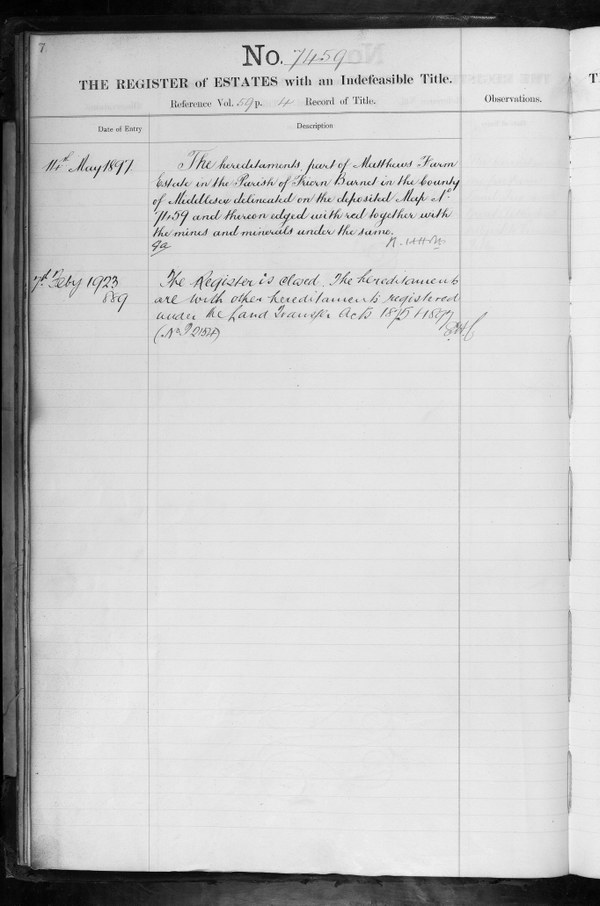 7
No. 7459
THE REGISTER of ESTATES with an Indefeasible Title.
Reference Vol. 59 p. 4 Record of Title.
Observations.
Date of Entry
Description
11th May 1897.
The hereditaments part of Matthews Farm
Estate in the Parish of Friern Barnet in the County
of Middlesex delineated on the deposited Map No.
7459 and thereon edged with red together with
the mines and minerals under the same.
7th Feby 1923
The Register is closed. The hereditaments
889
are with other hereditaments registered
under the Land Transfer Acts 1875 & 1897